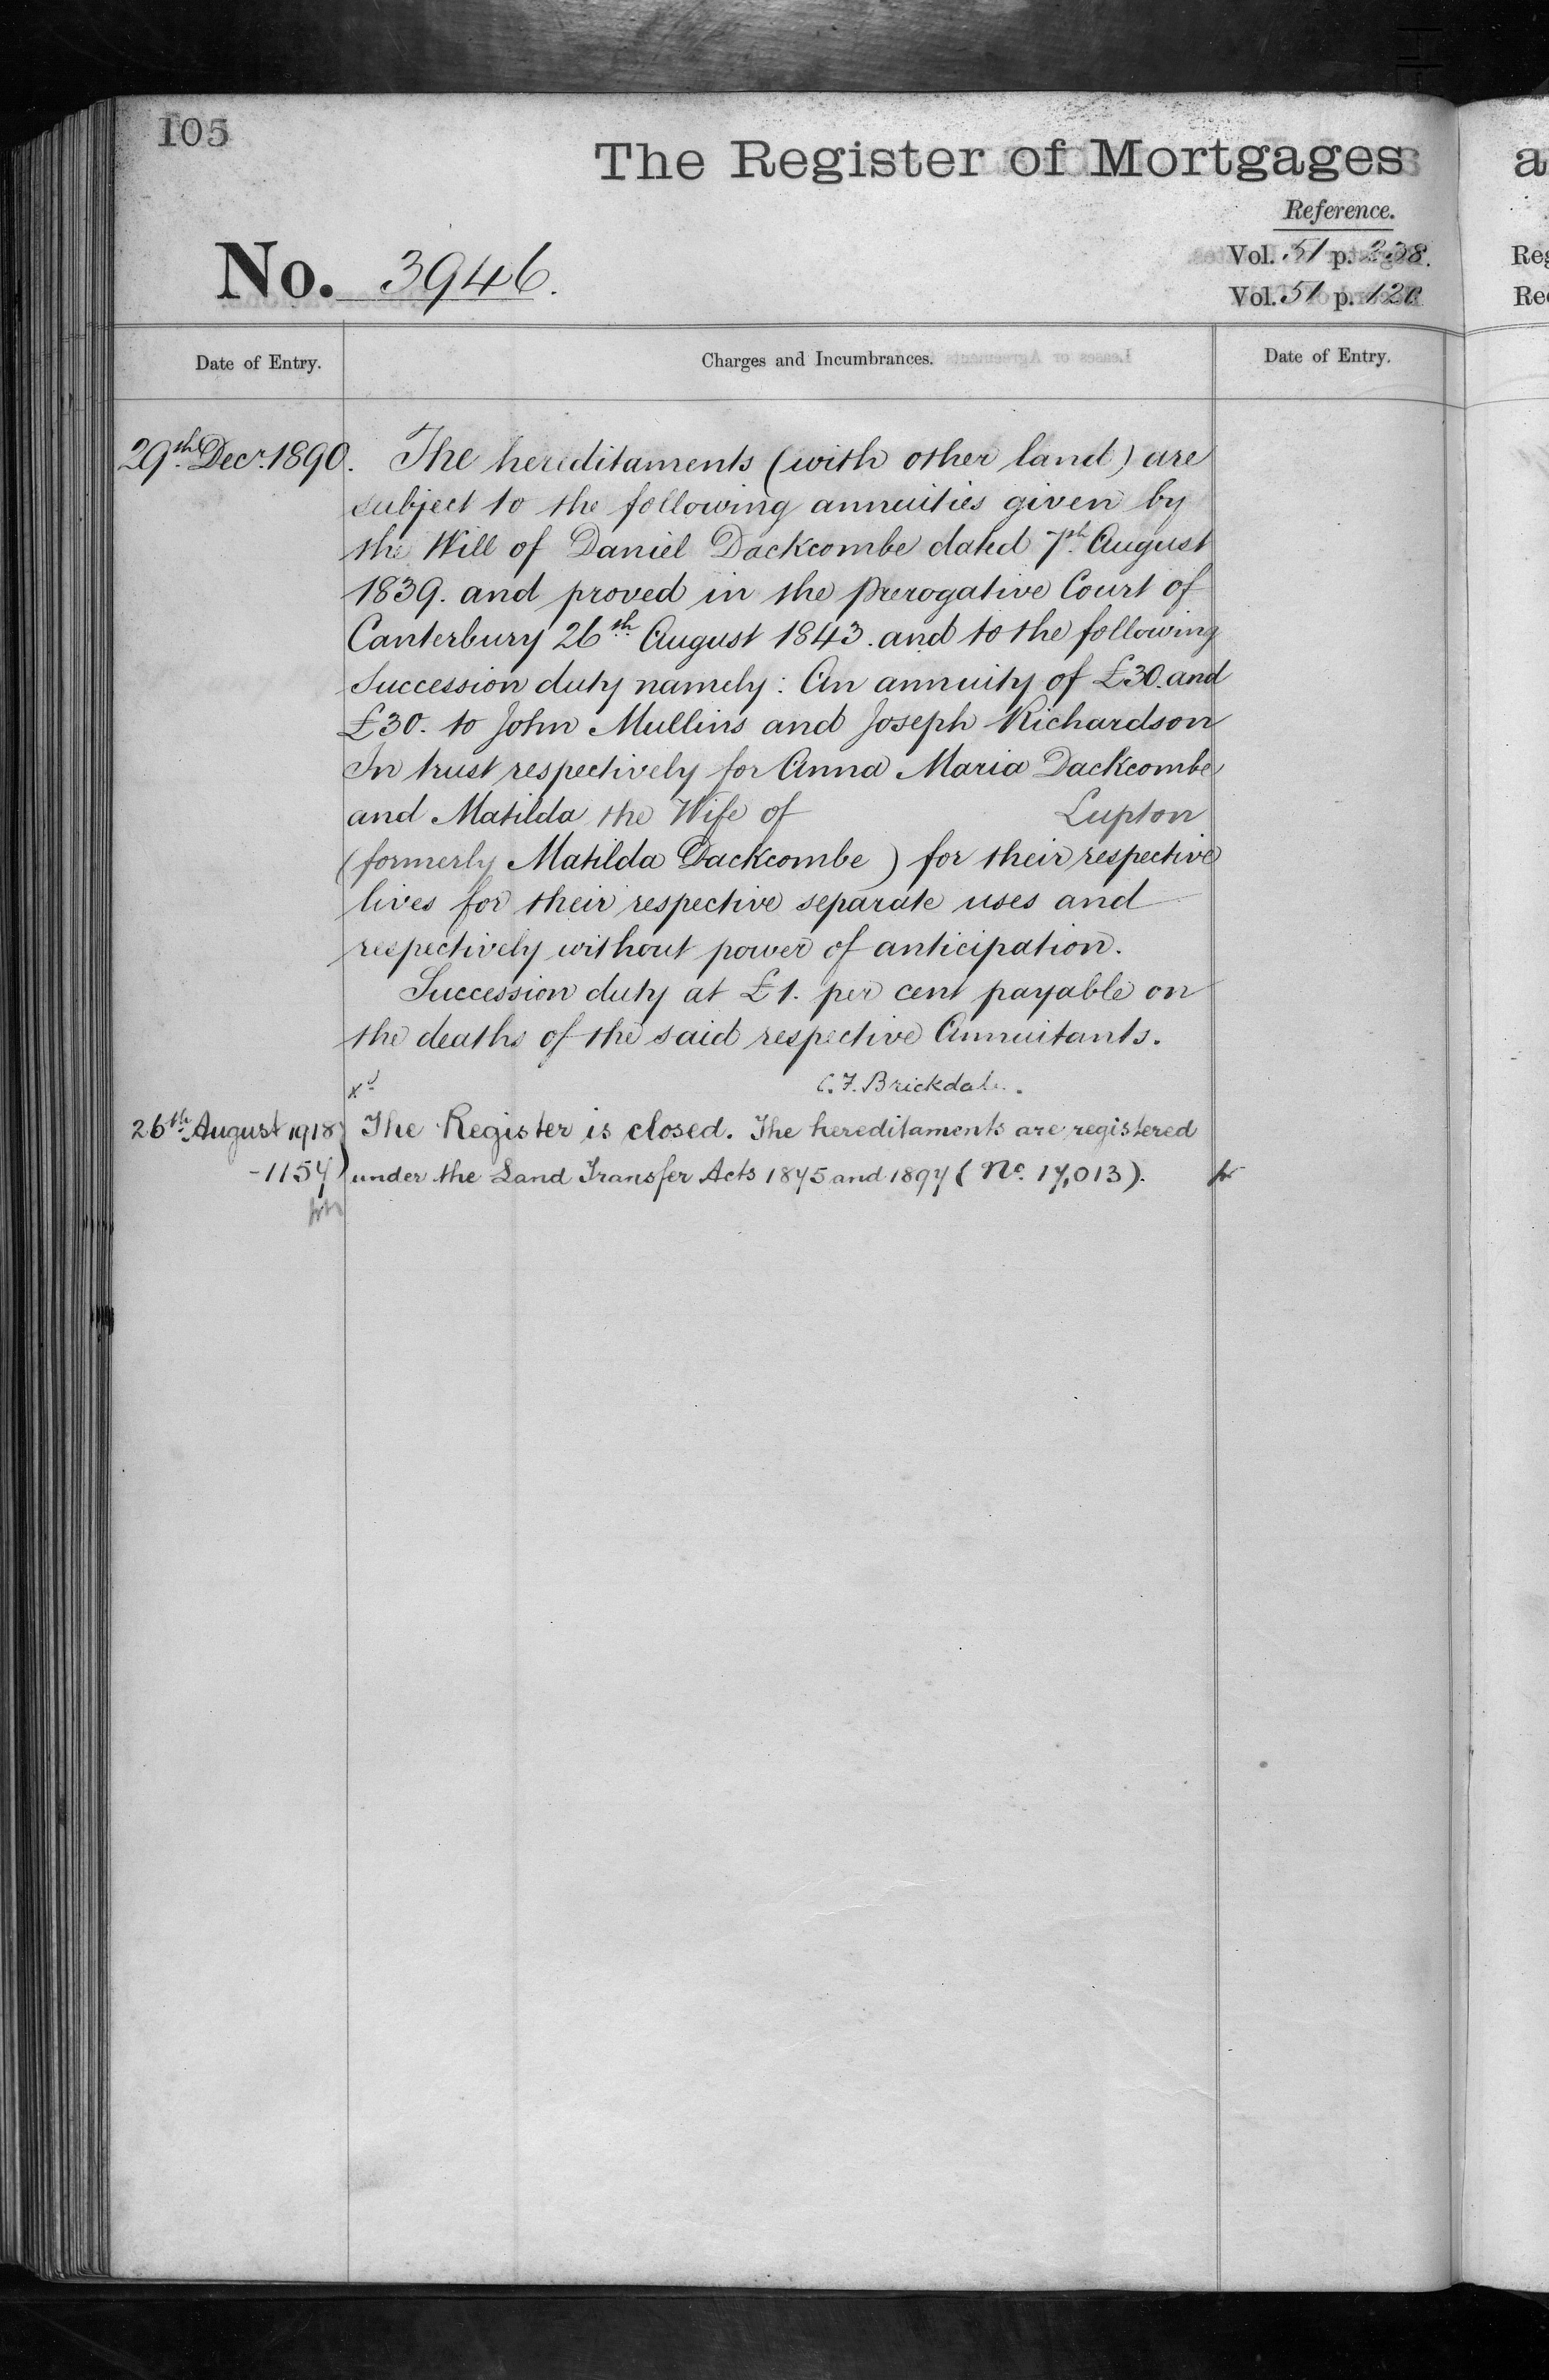 105
The Register of Mortgages
Reference.
No. 3946.
Vol. 51 p. 238.
Vol. 51 p. 120
Date of Entry.
Charges and Incumbrances.
Date of Entry.
29th Decr. 1890.
The hereditaments (with other land) are
subject to the following annuities given by
the Will of Daniel Dackcombe dated 7th August
1839. and proved in the Prerogative Court of
Canterbury 26th August 1843. and to the following
Succession duty namely: An annuity of £30. and
£30. to John Mullins and Joseph Richardson
In trust respectively for Anna Maria Dackcombe
and Matilda the Wife of Lupton
(formerly Matilda Dackcombe) for their respective
lives for their respective separate uses and
respectively without power of anticipation.
Succession duty at £1. per cent payable on
the deaths of the said respective Annuitants.
xd
C. F. Brickdale.
26th August 1918
-1157
The Register is closed. The hereditaments are registered
under the Land Transfer Acts 1875 and 1897 (No. 17,013).
a
Reg
Rec